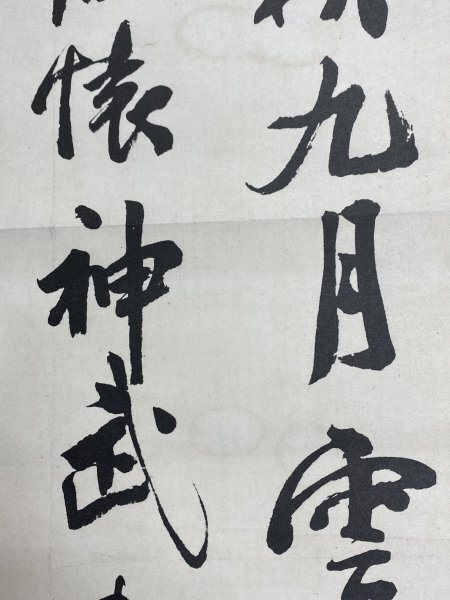 九月雲
懐神武